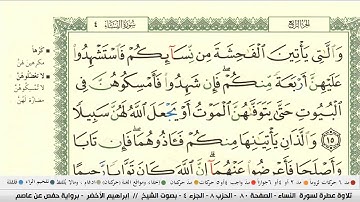 الجزء الرابع
سورة النساء
٤
وَٱلَّٰتِى يَأْتِينَ ٱلْفَٰحِشَةَ مِن نِّسَآئِكُمْ فَٱسْتَشْهِدُوا۟
عَلَيْهِنَّ أَرْبَعَةً مِّنكُمْ ۖ فَإِن شَهِدُوا۟ فَأَمْسِكُوهُنَّ فِى
ٱلْبُيُوتِ حَتَّىٰ يَتَوَفَّىٰهُنَّ ٱلْمَوْتُ أَوْ يَجْعَلَ ٱللَّهُ لَهُنَّ سَبِيلًا
١٥ وَٱلَّذَانِ يَأْتِيَٰنِهَا مِنكُمْ فَـَٔاذُوهُمَا ۖ فَإِن تَابَا
وَأَصْلَحَا فَأَعْرِضُوا۟ عَنْهُمَآ ۗ إِنَّ ٱللَّهَ كَانَ تَوَّابًا رَّحِيمًا
كَرْهًا
مكرهين لهن
لا تعضلوهن
لا تمسكوهن
مضارة لهن
تلاوة عطرة سورة النساء - الصفحة ٨٠ - الحزب ٨ - الجزء ٤ - بصوت الشيخ // إبراهيم الأخضر - برواية حفص عن عاصم